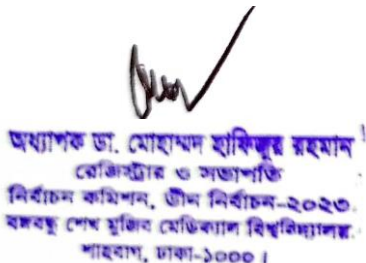 অধ্যাপক ডা. মোহাম্মদ হাফিজুর রহমান
রেজিস্ট্রার ও সভাপতি
নির্বাচন কমিশন, ডীন নির্বাচন-২০২৩
বঙ্গবন্ধু শেখ মুজিব মেডিক্যাল বিশ্ববিদ্যালয়
শাহবাগ, ঢাকা-১০০০।